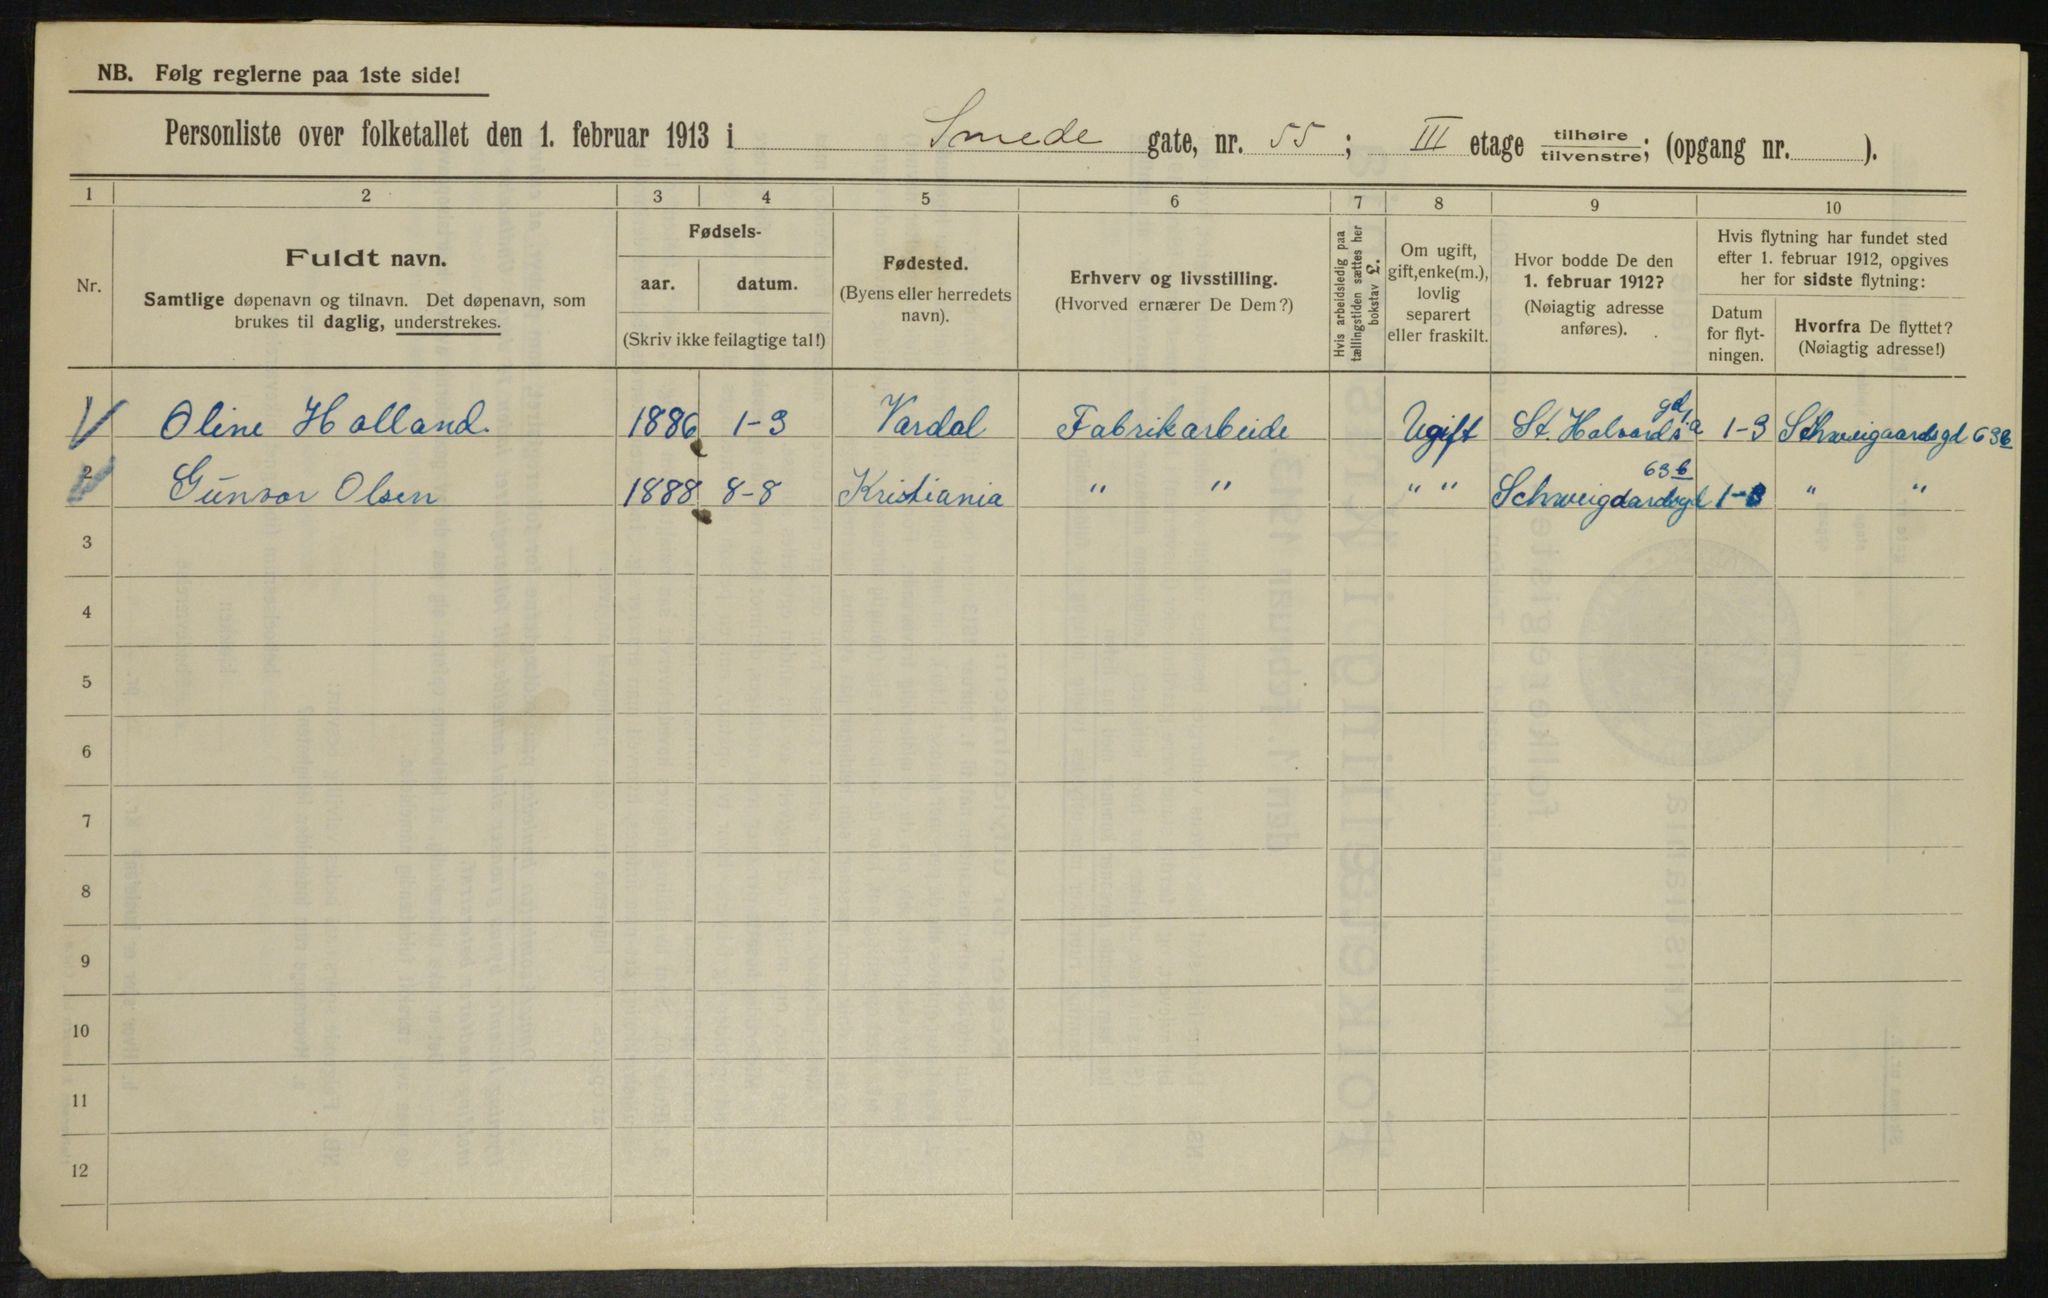 NB. Følg reglerne paa 1ste side!
Personliste over folketallet den 1. februar 1913 i Smede gate, nr. 55; III etage tilhøire / tilvenstre; (opgang nr. ).
1 2 3 4 5 6 7 8 9 10
Nr.
Fuldt navn.
Samtlige døpenavn og tilnavn. Det døpenavn, som
brukes til daglig, understrekes.
Fødsels-
aar. datum.
(Skriv ikke feilagtige tal!)
Fødested.
(Byens eller herredets
navn).
Erhverv og livsstilling.
(Hvorved ernærer De Dem?)
Hvis arbeidsledig paa
tællingstiden sættes her
bokstav L.
Om ugift,
gift, enke(m.),
lovlig
separert
eller fraskilt.
Hvor bodde De den
1. februar 1912?
(Nøiagtig adresse
anføres).
Hvis flytning har fundet sted
efter 1. februar 1912, opgives
her for sidste flytning:
Datum
for flyt-
ningen.
Hvorfra De flyttet?
(Nøiagtig adresse!)
Oline Holland. 1886 1-3 Vardal Fabrikarbeide Ugift St. Halvards gd 1.a 1-3 Schweigaardsgd 63b
2 Gunvor Olsen 1888 8-8 Kristiania " " " " Schweigaardsgd 63b 1-3 " "
3
4
5
6
7
8
9
10
11
12